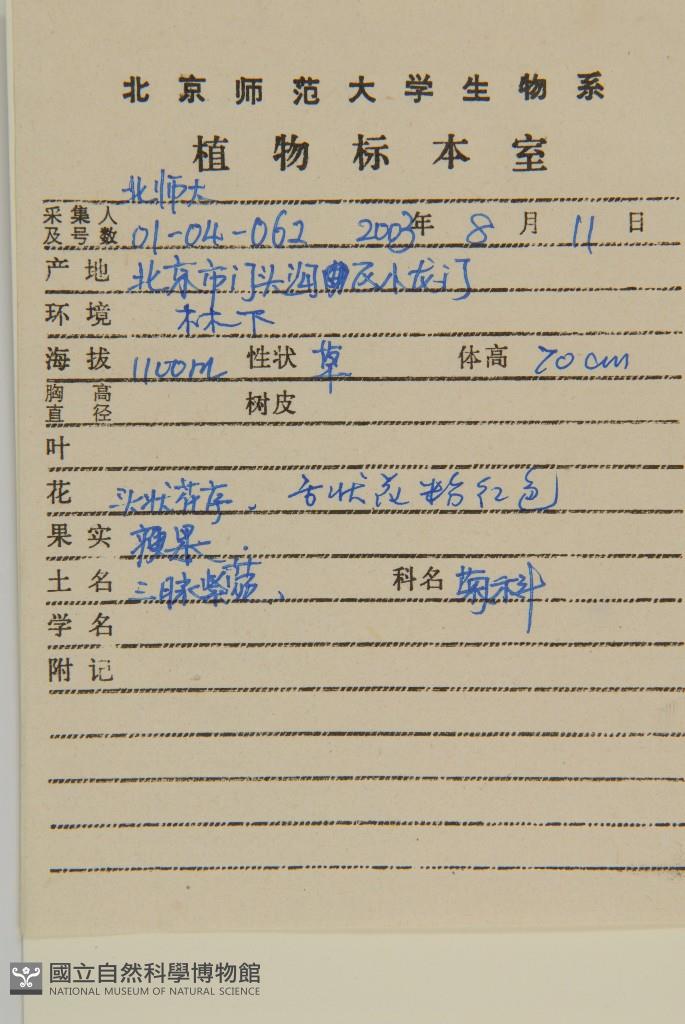 北京师范大学生物系
植物标本室
北师大
采集人及号数 01-04-062 2003年 8月 11日
产地 北京市门头沟区小龙门
环境 林下
海拔 1100m 性状 草 体高 70cm
胸高直径 树皮
叶
花 头状花序、舌状花粉红色
果实 瘦果.
土名 三脉紫菀、 科名 菊科
学名
附记
國立自然科學博物館
NATIONAL MUSEUM OF NATURAL SCIENCE